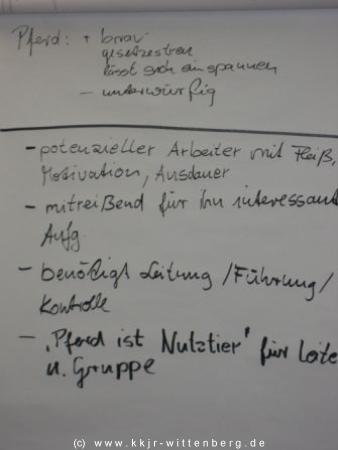 Pferd: + brav
gesetzestreu
lässt sich einspannen
- unterwürfig
- potenzieller Arbeiter mit Fleiß,
Motivation, Ausdauer
- mitreißend für ihn interessant
Aufg.
- benötigt Leitung /Führung/
Kontrolle
- "Pferd ist Nutztier" für Leite
u. Gruppe
(c) www.kkjr-wittenberg.de